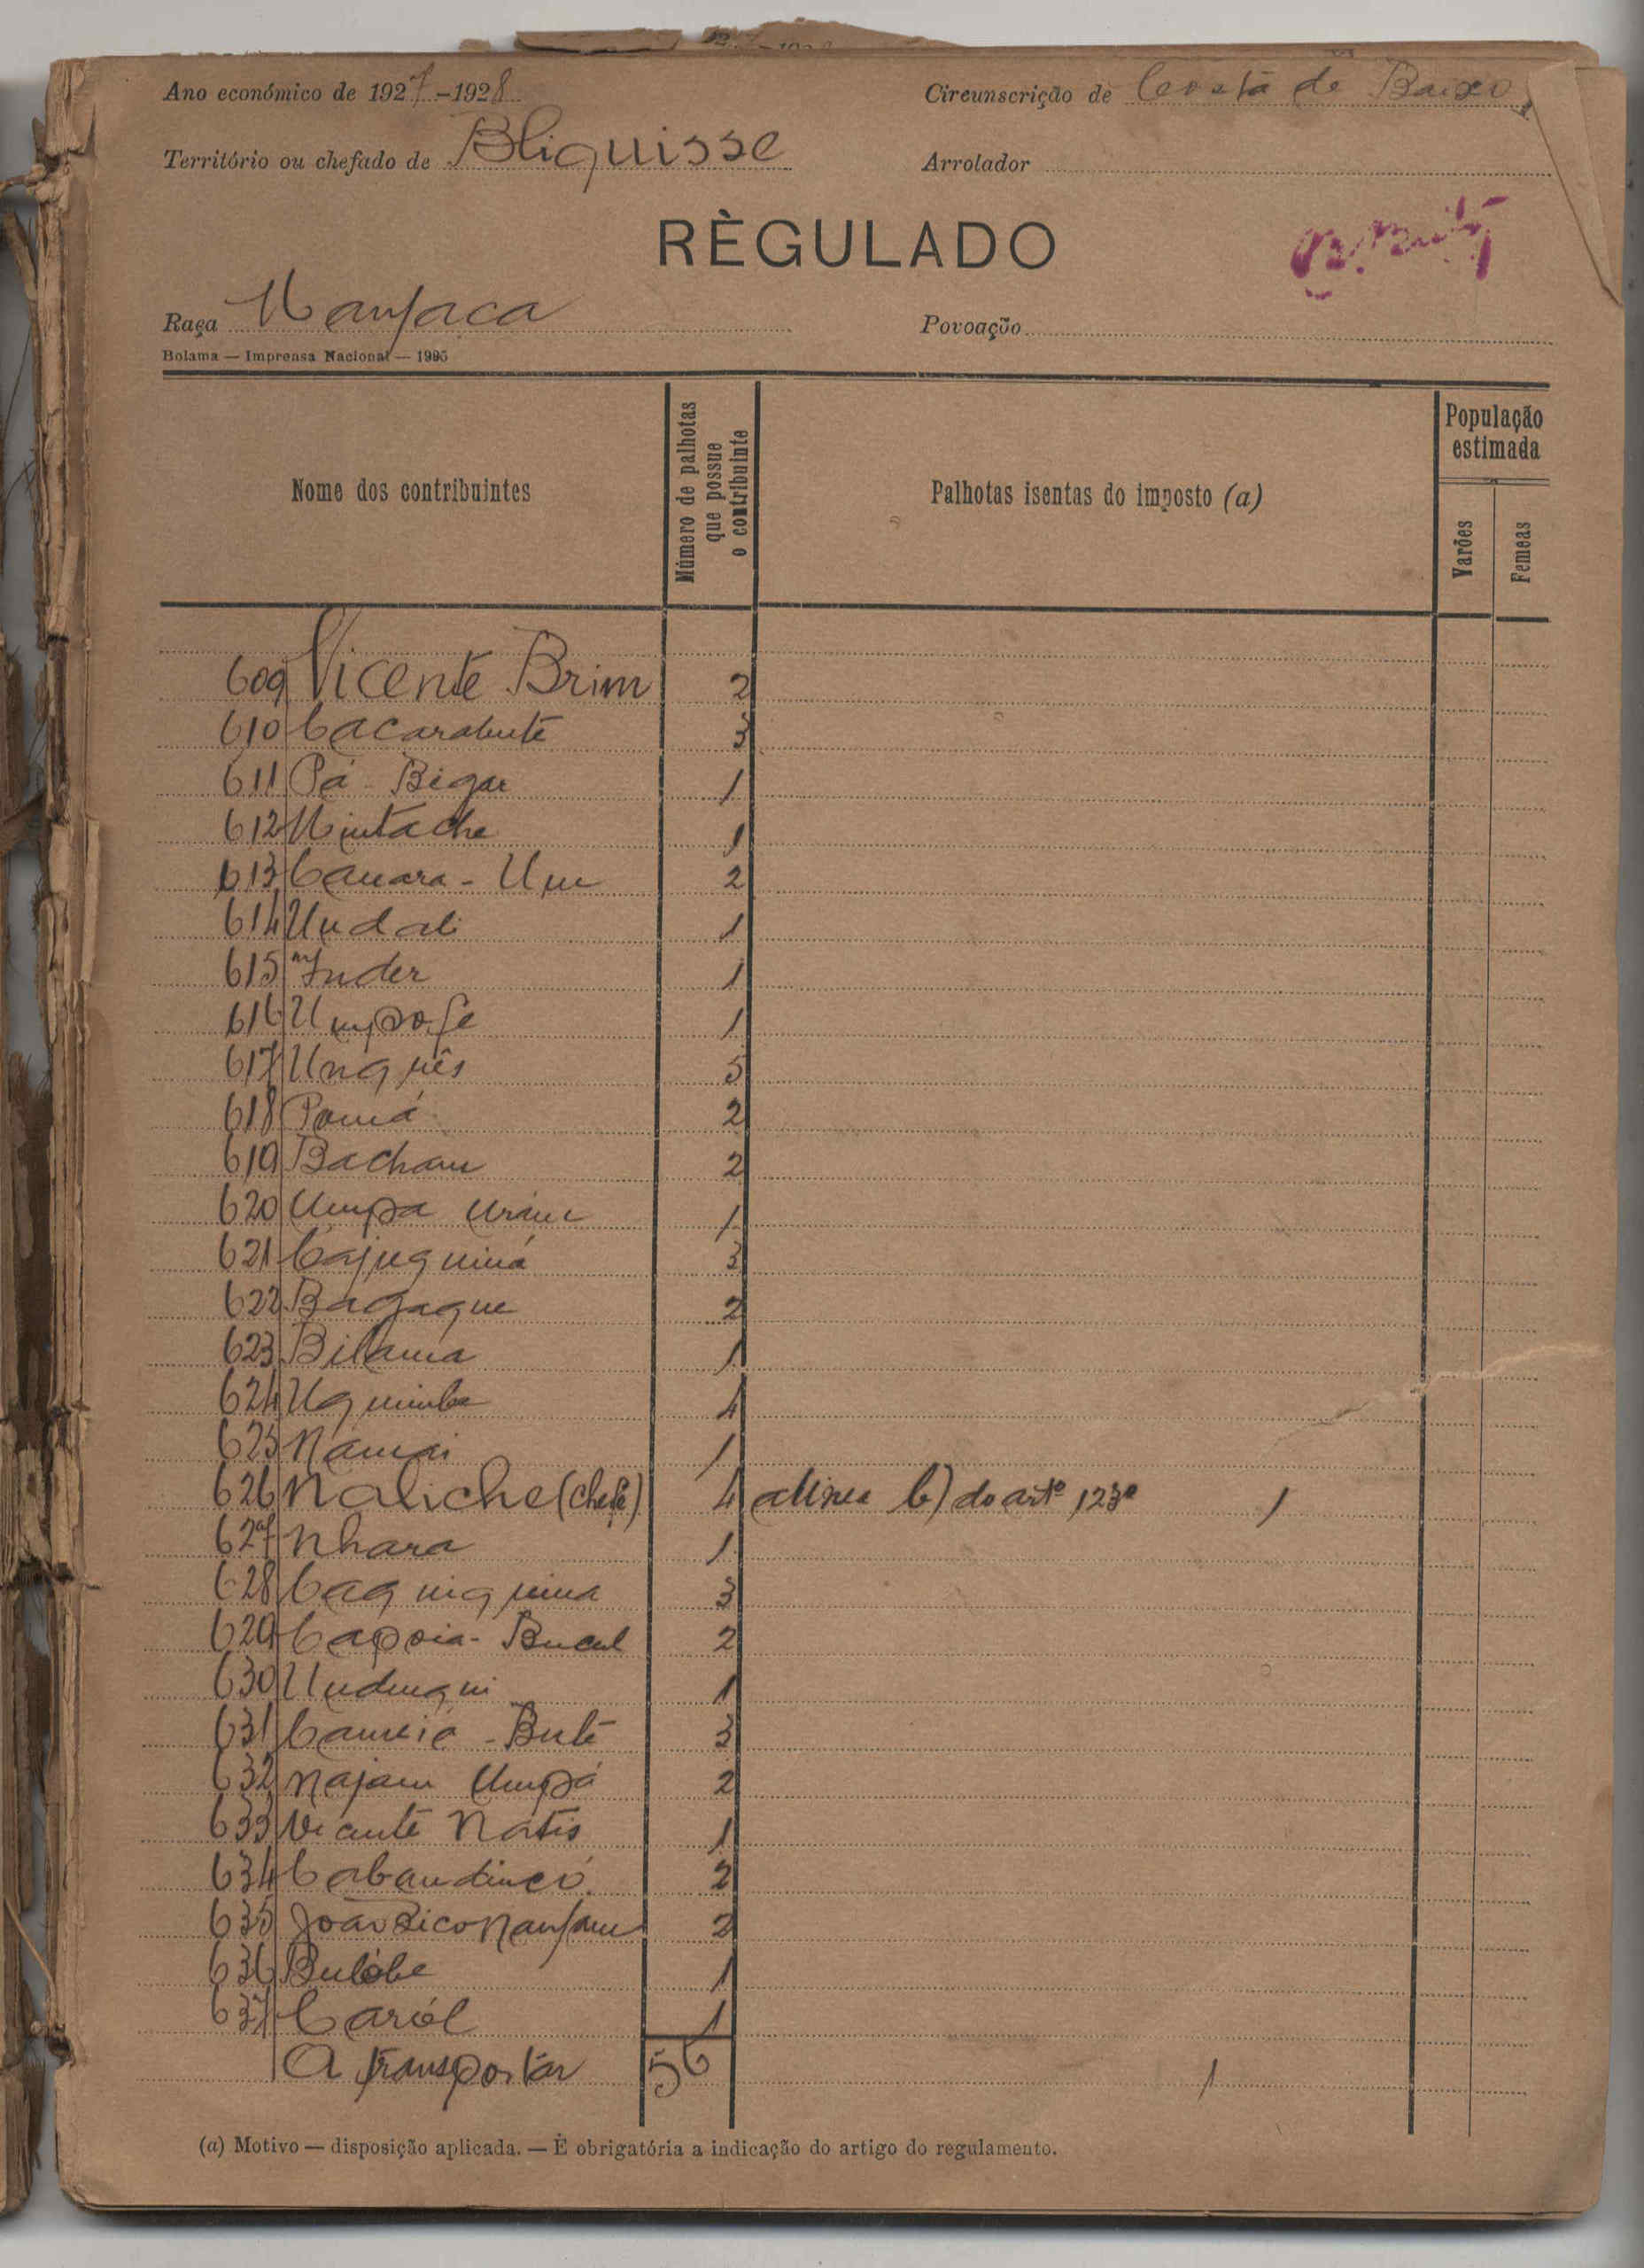 Ano económico de 1927-1928 Circunscrição de Costa de Baixo
Território ou chefado de Bliquisse Arrolador
RÈGULADO
Raça Manjaca Povoação
Bolama — Imprensa Nacional — 1925
Nome dos contribuintes
Número de palhotas que possue o contribuinte
Palhotas isentas do imposto (a)
População estimada
Varões
Femeas
609 Vicente Brim 2
610 Cacarabuté 3
611 Pá - Bigar 1
612 Mintache 1
613 Camara - Um 2
614 Undali 1
615 Inder 1
616 1
617 Unquês 5
618 Pomá 2
619 Bacham 2
620 Umpa 1
621 Cajuquiná 3
622 Bagaque 2
623 Bilama 1
624 Uquimba 4
625 Námai 1
626 Naliche (chefe) 4 alinea b) do artº 123º 1
627 Nhara 1
628 3
629 Capoia - Bucul 2
630 Undunqui 1
631 - Buté 3
632 Najam Umpá 2
633 Vicente Natis 1
634 2
635 João Bico Nanfam 2
636 Bulóbe 1
637 Cariól 1
A transportar 56 1
(a) Motivo — disposição aplicada. — È obrigatória a indicação do artigo do regulamento.